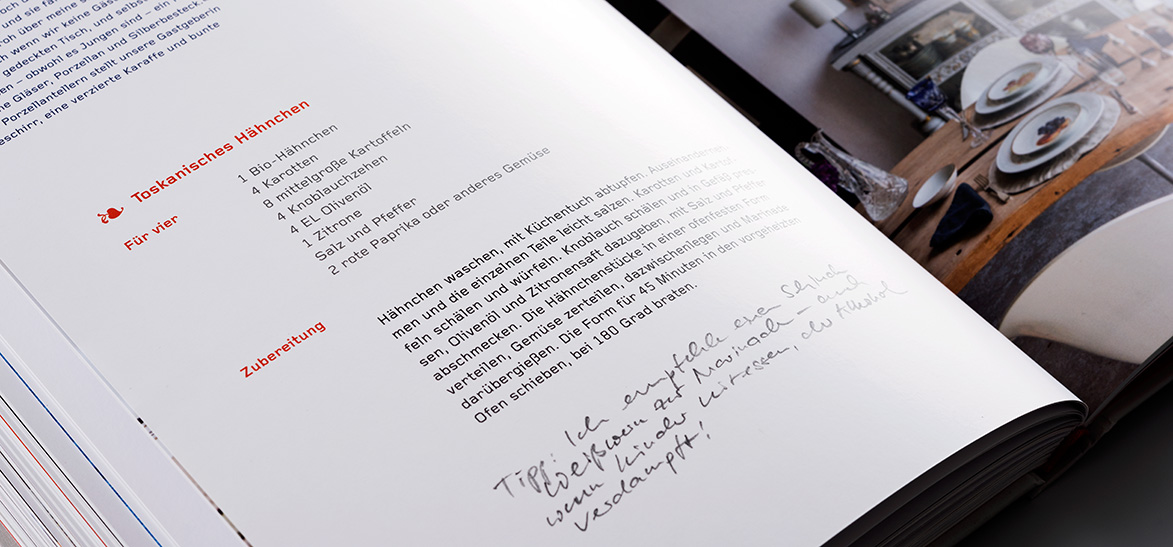 och ü
und sie fa
roh über meine s
ch wenn wir keine Gäs
gedeckten Tisch, und selbs
en – obwohl es Jungen sind – ein
ne Gläser, Porzellan und Silberbesteck.
Porzellantellern stellt unsere Gastgeberin
eschirr, eine verzierte Karaffe und bunte
Toskanisches Hähnchen
Für vier
1 Bio-Hähnchen
4 Karotten
8 mittelgroße Kartoffeln
4 Knoblauchzehen
4 EL Olivenöl
1 Zitrone
Salz und Pfeffer
2 rote Paprika oder anderes Gemüse
Zubereitung
Hähnchen waschen, mit Küchentuch abtupfen. Auseinanderneh-
men und die einzelnen Teile leicht salzen. Karotten und Kartof-
feln schälen und würfeln. Knoblauch schälen und in Gefäß pres-
sen, Olivenöl und Zitronensaft dazugeben, mit Salz und Pfeffer
abschmecken. Die Hähnchenstücke in einer ofenfesten Form
verteilen, Gemüse zerteilen, dazwischenlegen und Marinade
darübergießen. Die Form für 45 Minuten in den vorgeheizten
Ofen schieben, bei 180 Grad braten.
Tipp: Ich empfehle einen Schluck
Weißwein zur Marinade – auch
wenn Kinder mitessen, der Alkohol
verdampft!